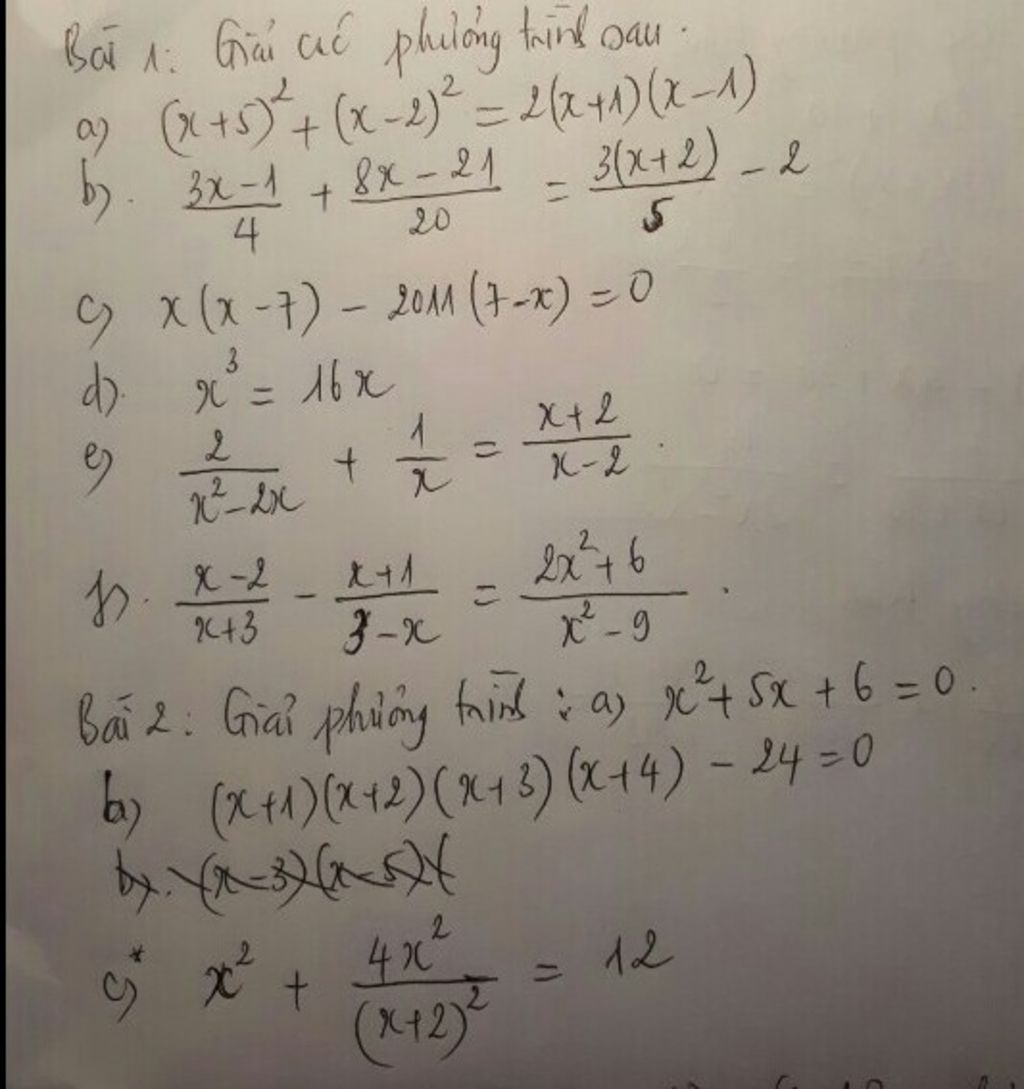 Bài 1: Giải các phương trình sau.
a) (x+5)² + (x-2)² = 2(x+1)(x-1)
b). (3x-1)/4 + (8x-21)/20 = 3(x+2)/5 - 2
c) x(x-7) - 2011(7-x) = 0
d). x³ = 16x
e) 2/(x²-2x) + 1/x = (x+2)/(x-2).
f). (x-2)/(x+3) - (x+1)/(3-x) = (2x²+6)/(x²-9).
Bài 2: Giải phương trình: a) x² + 5x + 6 = 0.
b) (x+1)(x+2)(x+3)(x+4) - 24 = 0
b). (x-3)(x-5)(
c)* x² + 4x²/(x+2)² = 12